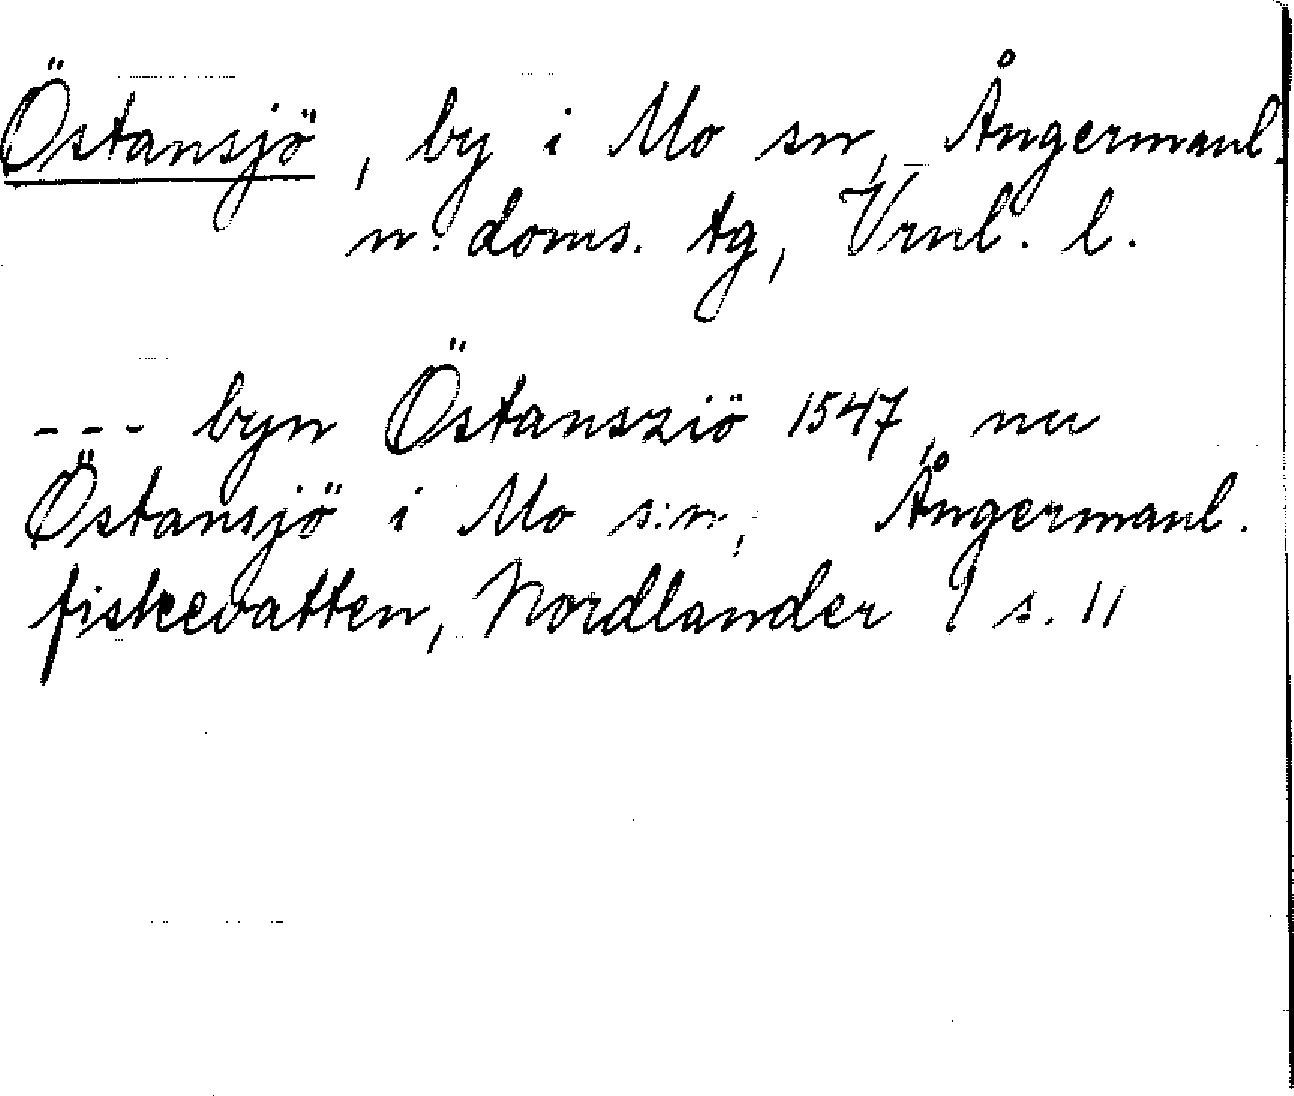 Östansjö, by i Mo sn, Ångermanl.
n. doms. tg, Vrnl. l.
--- byn Östansziö 1547, nu
Östansjö i Mo s:n, Ångermanl.
fiskevatten, Nordlander I s. 11